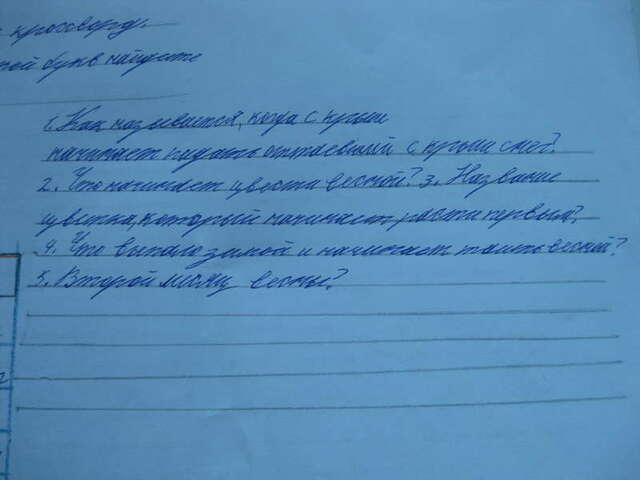 кроссворду.
букв найдите
1. Как называется, когда с крыши
начинает падать оттаевший с крыши снег.
2. Что начинает цвести весной? 3. Название
цветка, который начинает расти первым?
4. Что выпало зимой и начинает таить весной?
5. Второй месяц весны?